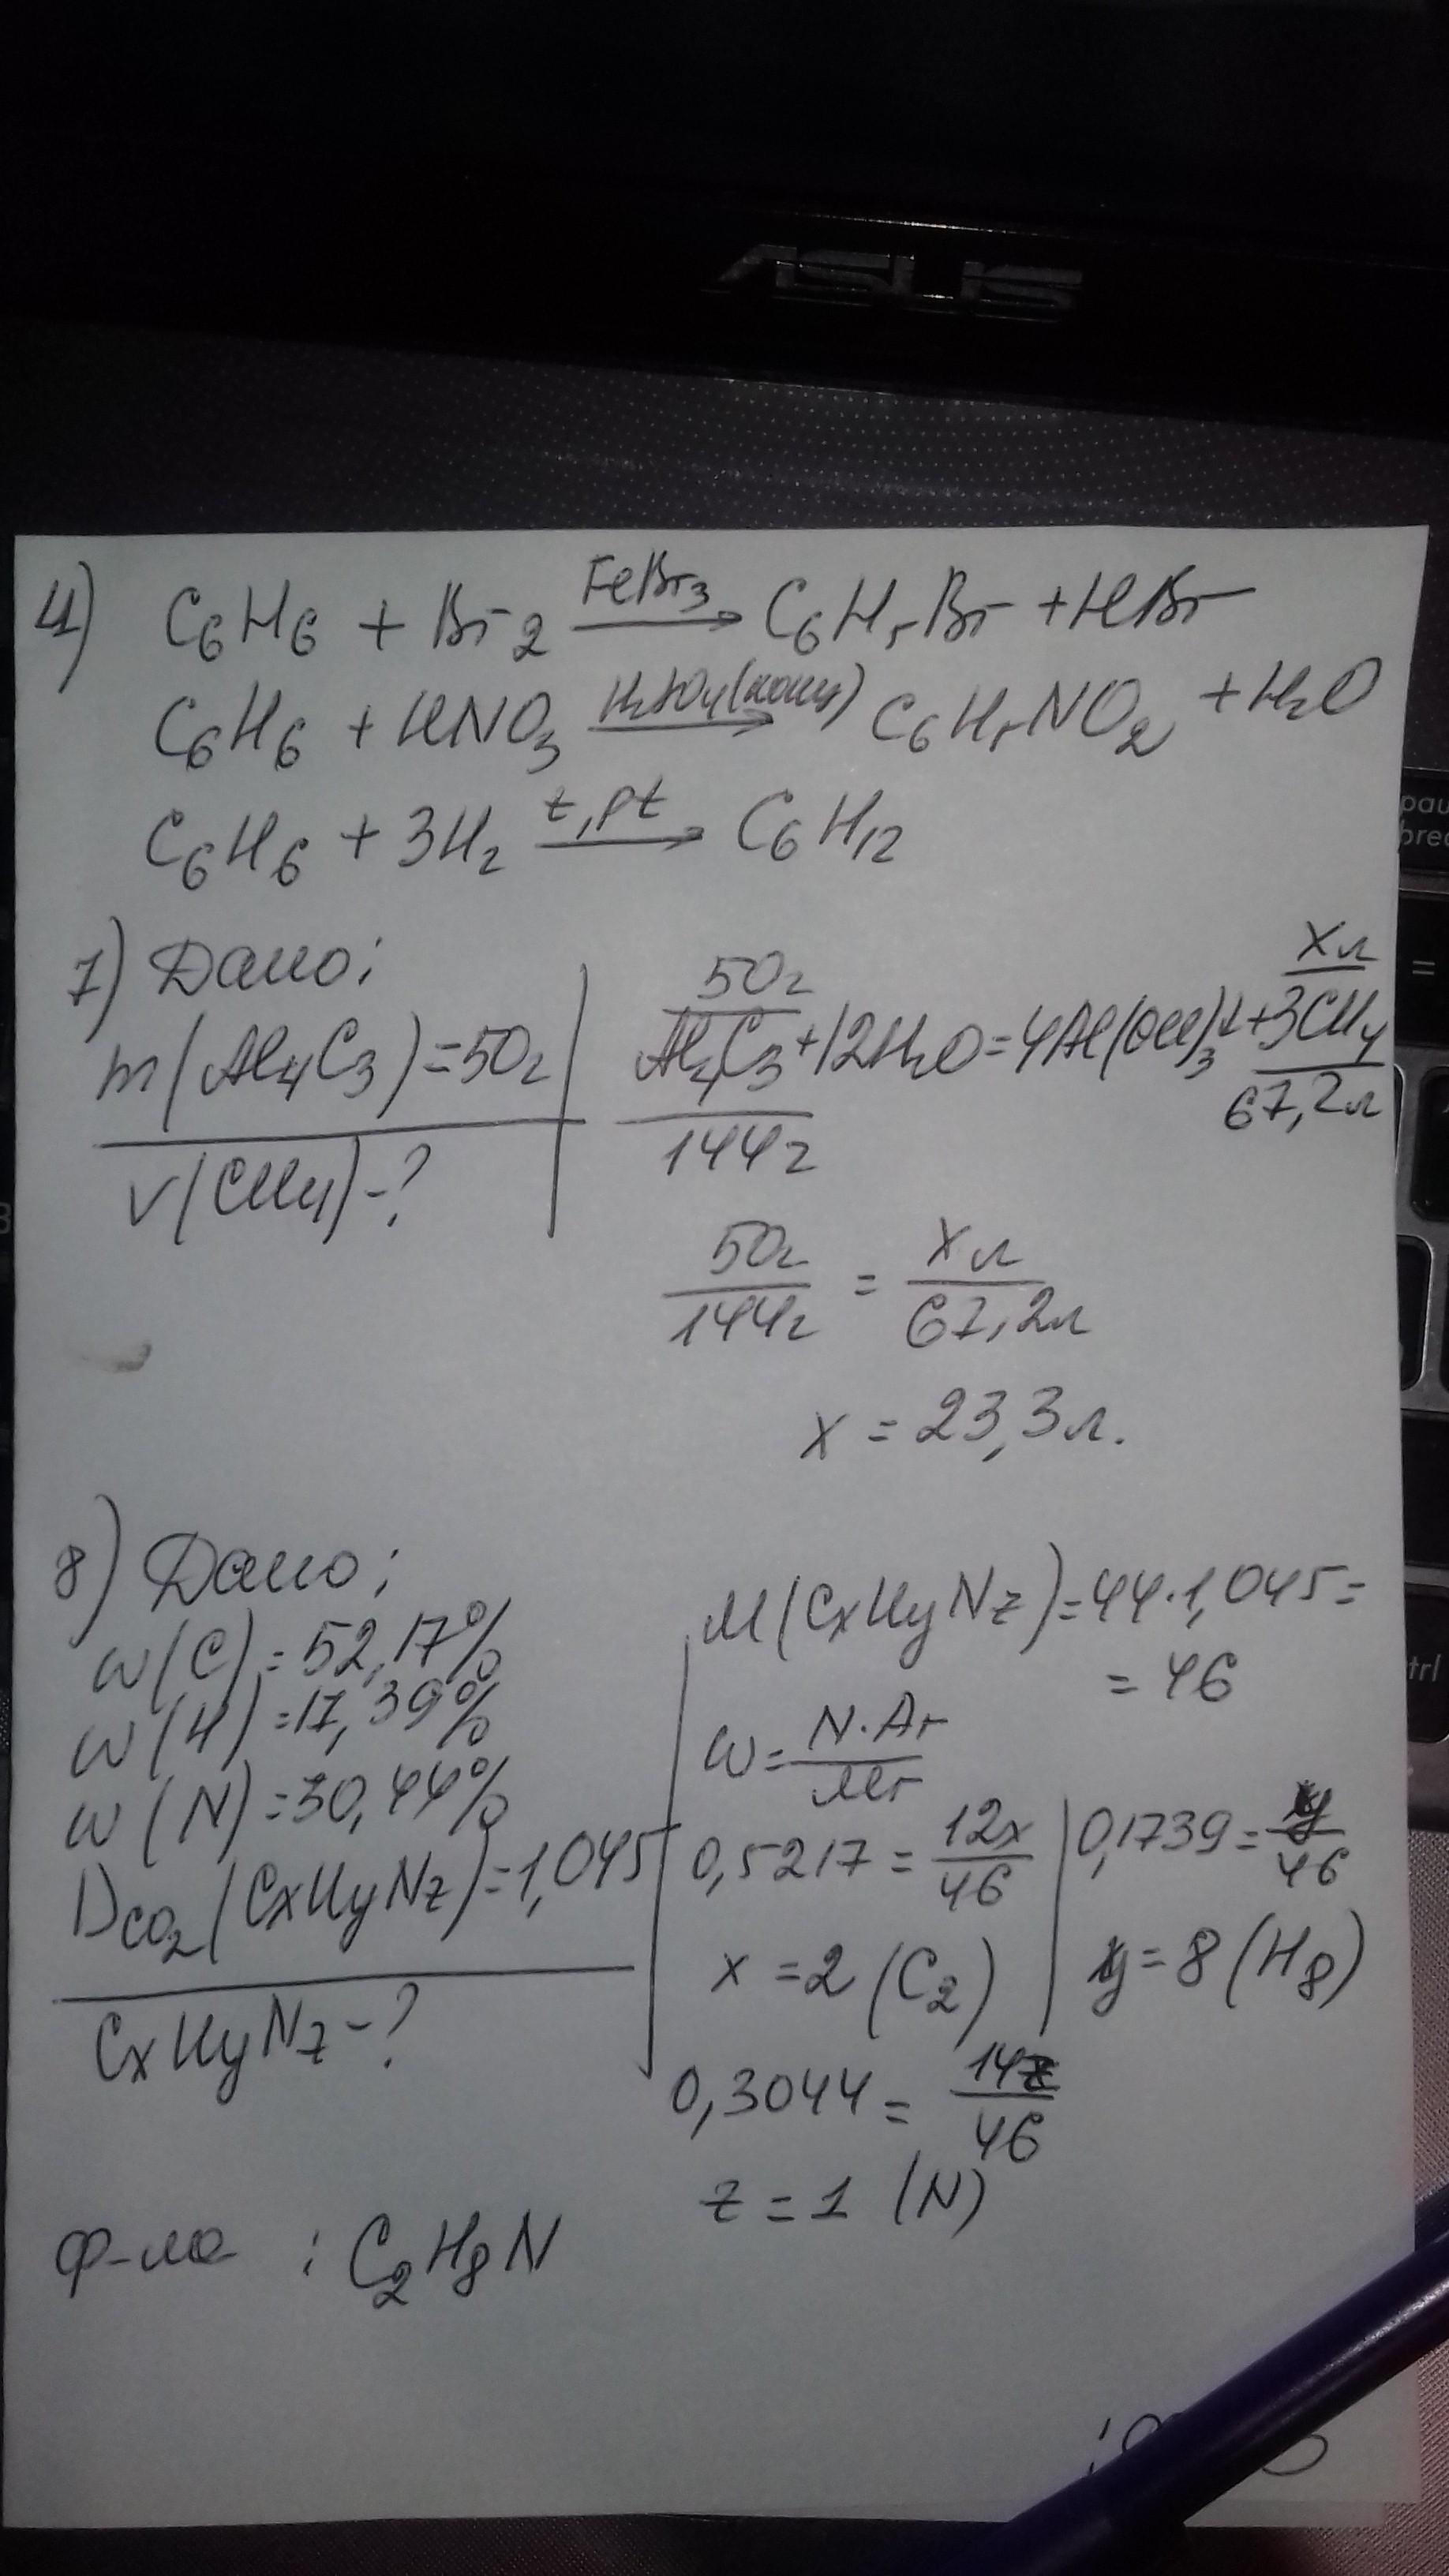 ASUS
4) C6H6 + Br2 FeBr3 → C6H5Br + HBr
C6H6 + HNO3 H2SO4(конц) → C6H5NO2 + H2O
C6H6 + 3H2 t, pt → C6H12
pau
brea
7) Дано:
m(Al4C3)=50г
V(CH4)-?
50г хл
Al4C3+12H2O=4Al(OH)3↓+3CH4
144г 67,2л
50г/144г = хл/67,2л
x = 23,3л.
8) Дано:
w(C)=52,17%
w(H)=17,39%
w(N)=30,44%
DCO2(CxHyNz)=1,045
CxHyNz-?
M(CxHyNz)=44·1,045=
= 46
trl
w=N·Ar/Mr
0,5217=12x/46
x=2 (C2)
0,1739=y/46
y=8 (H8)
0,3044=14z/46
z=1 (N)
ф-ла : C2H8N